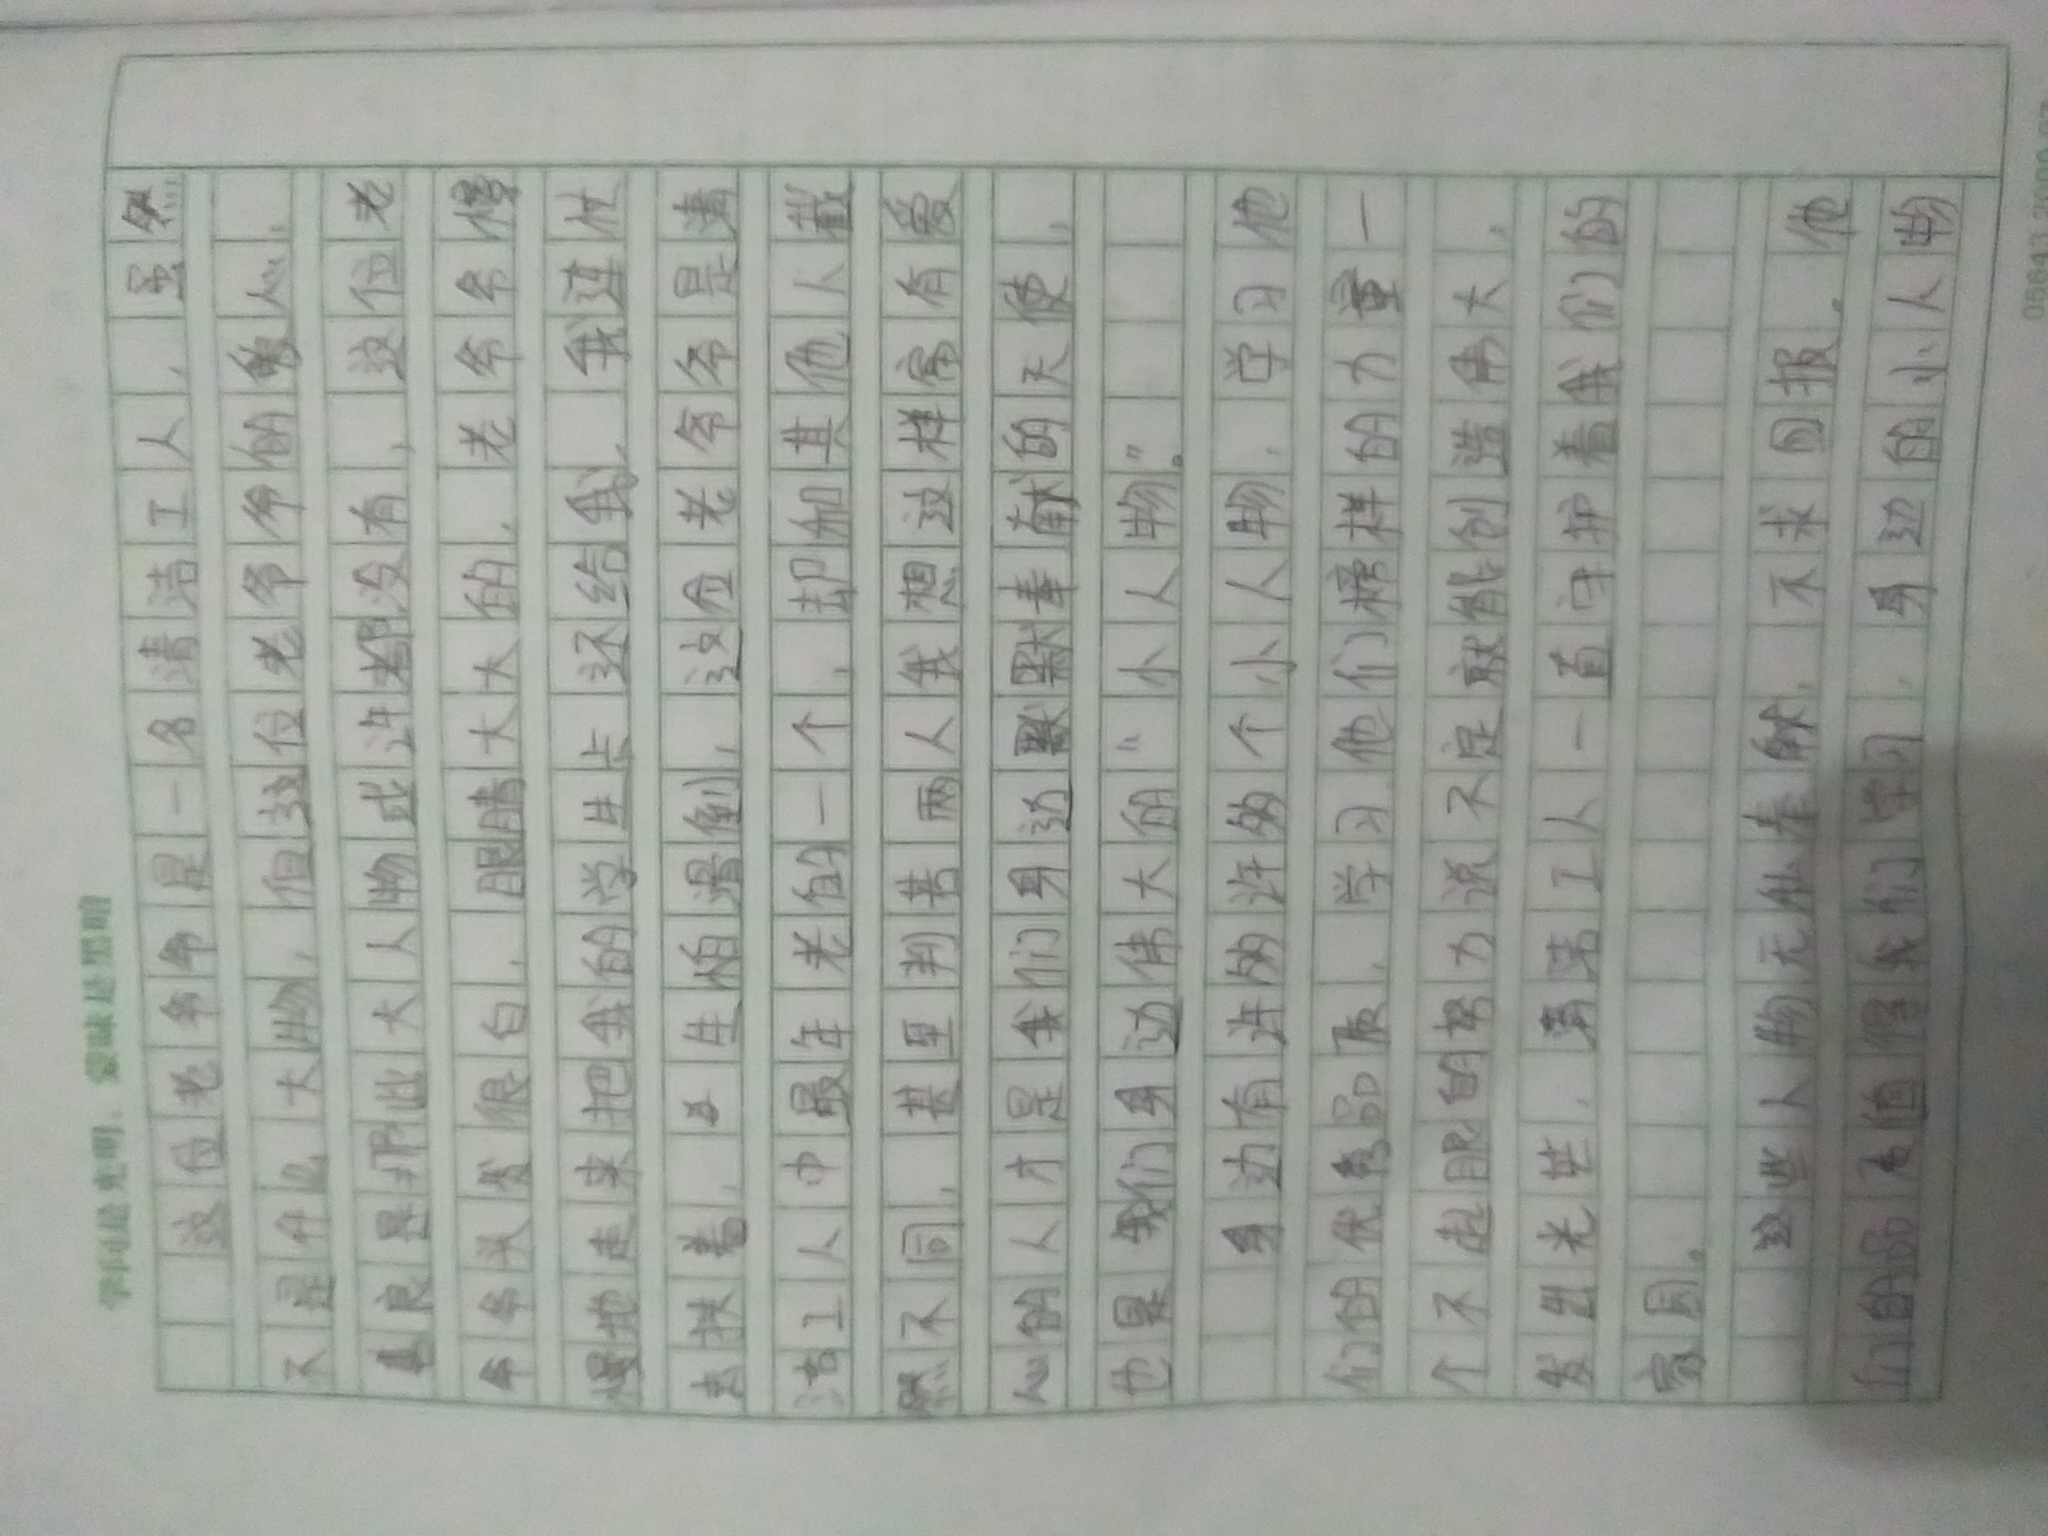 学问是光明，蒙昧是黑暗
这位老爷爷是一名清洁工人，虽然
不是什么大物，但这位老爷爷的爱心，
良是那些大人物或许都没有，这位老
爷爷头发很白，眼睛大大的，老爷爷慢
慢地走来把我的学生卡还给我，我连忙
去扶着，生怕滑倒，这位老爷爷是清
洁工人中最年老的一个，却加其他人截
然不同，甚至判若两人我想这样富有爱
心的人才是我们身边默默奉献的天使，
也是我们身边伟大的“小人物”。
身边有许多许多个小人物，学习他
们的优秀品质，学习他们榜样的力量一
个不起眼的努力说不定就能创造伟大，
发出光芒，劳苦工人一直守护着我们的
家园。
这些人物无私奉献，不求回报，他
们的品质值得我们学习，身边的小人物